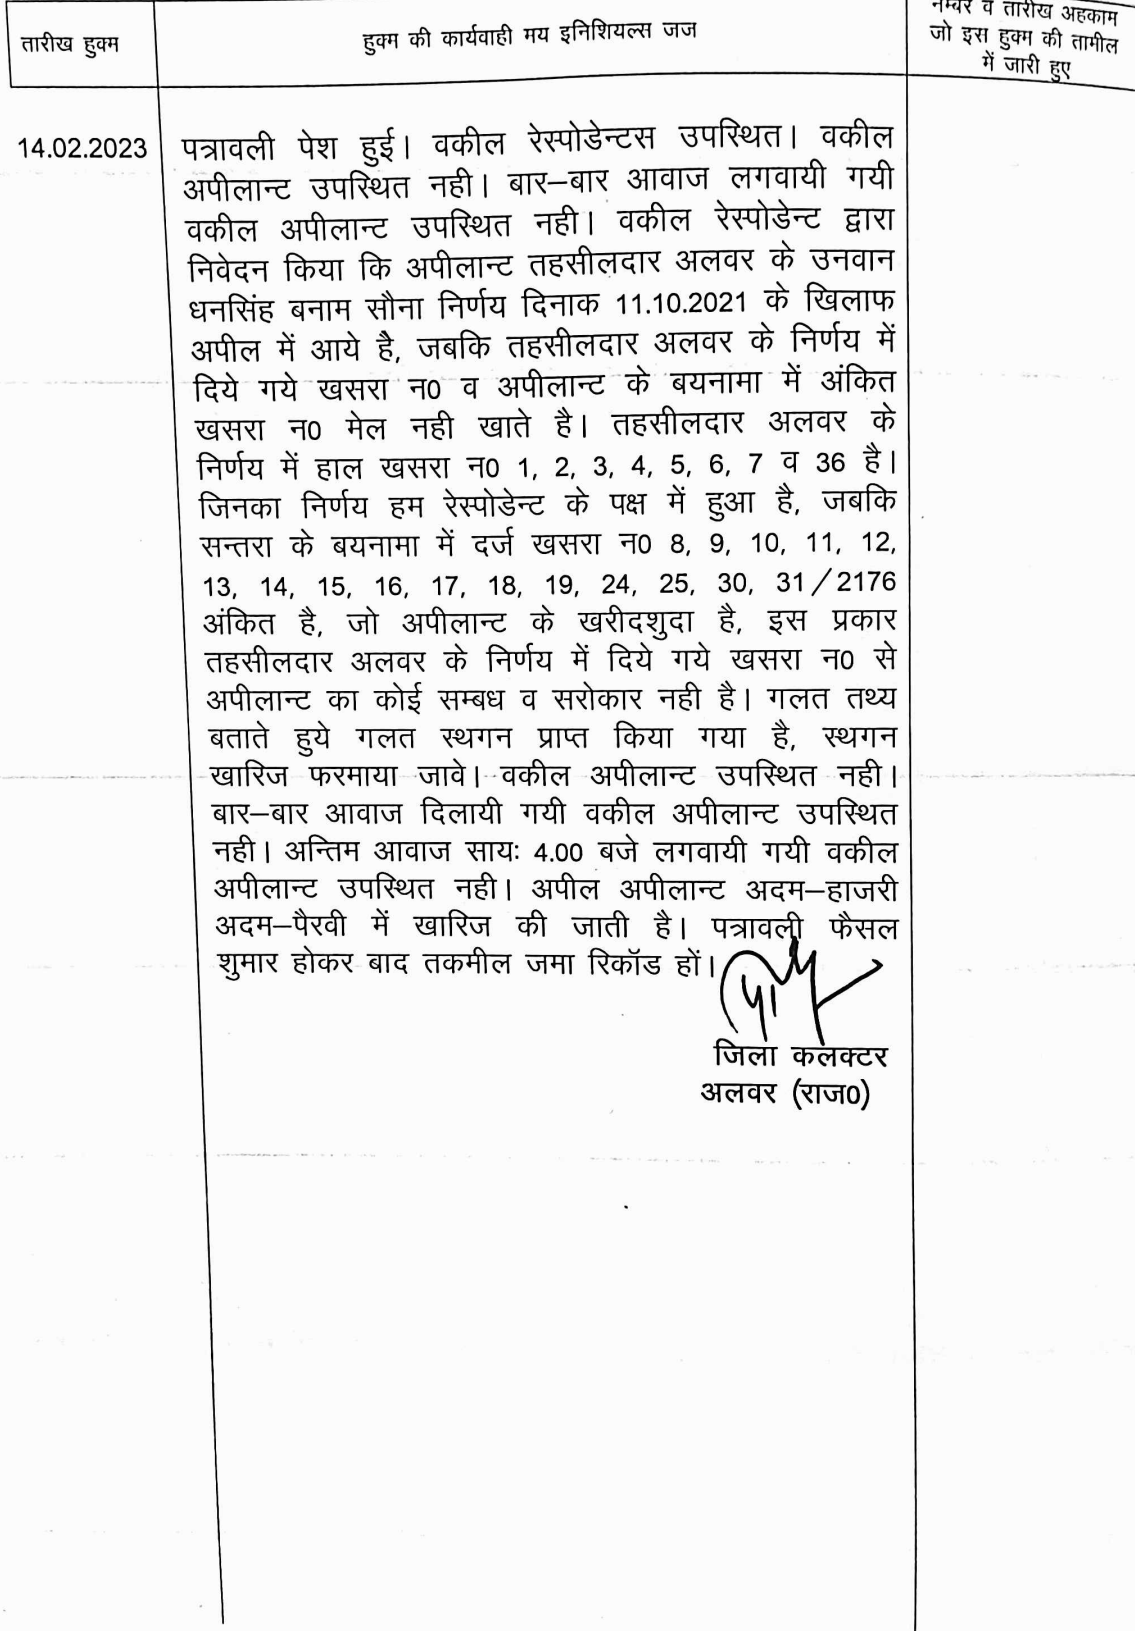 तारीख हुक्म
हुक्म की कार्यवाही मय इनिशियल्स जज
नम्बर व तारीख अहकाम
जो इस हुक्म की तामील
में जारी हुए
14.02.2023
पत्रावली पेश हुई। वकील रेस्पोडेन्टस उपस्थित। वकील
अपीलान्ट उपस्थित नही। बार–बार आवाज लगवायी गयी
वकील अपीलान्ट उपस्थित नही। वकील रेस्पोडेन्ट द्वारा
निवेदन किया कि अपीलान्ट तहसीलदार अलवर के उनवान
धनसिंह बनाम सौना निर्णय दिनाक 11.10.2021 के खिलाफ
अपील में आये है, जबकि तहसीलदार अलवर के निर्णय में
दिये गये खसरा न0 व अपीलान्ट के बयनामा में अंकित
खसरा न0 मेल नही खाते है। तहसीलदार अलवर के
निर्णय में हाल खसरा न0 1, 2, 3, 4, 5, 6, 7 व 36 है।
जिनका निर्णय हम रेस्पोडेन्ट के पक्ष में हुआ है, जबकि
सन्तरा के बयनामा में दर्ज खसरा न0 8, 9, 10, 11, 12,
13, 14, 15, 16, 17, 18, 19, 24, 25, 30, 31/2176
अंकित है, जो अपीलान्ट के खरीदशुदा है, इस प्रकार
तहसीलदार अलवर के निर्णय में दिये गये खसरा न0 से
अपीलान्ट का कोई सम्बध व सरोकार नही है। गलत तथ्य
बताते हुये गलत स्थगन प्राप्त किया गया है, स्थगन
खारिज फरमाया जावे। वकील अपीलान्ट उपस्थित नही।
बार–बार आवाज दिलायी गयी वकील अपीलान्ट उपस्थित
नही। अन्तिम आवाज सायः 4.00 बजे लगवायी गयी वकील
अपीलान्ट उपस्थित नही। अपील अपीलान्ट अदम–हाजरी
अदम–पैरवी में खारिज की जाती है। पत्रावली फैसल
शुमार होकर बाद तकमील जमा रिकॉड हों।
जिला कलक्टर
अलवर (राज0)